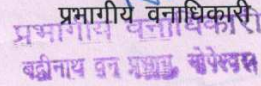 प्रभागीय वनाधिकारी
प्रभागीय वनाधिकारी
बद्रीनाथ वन प्रभाग, गोपेश्वर